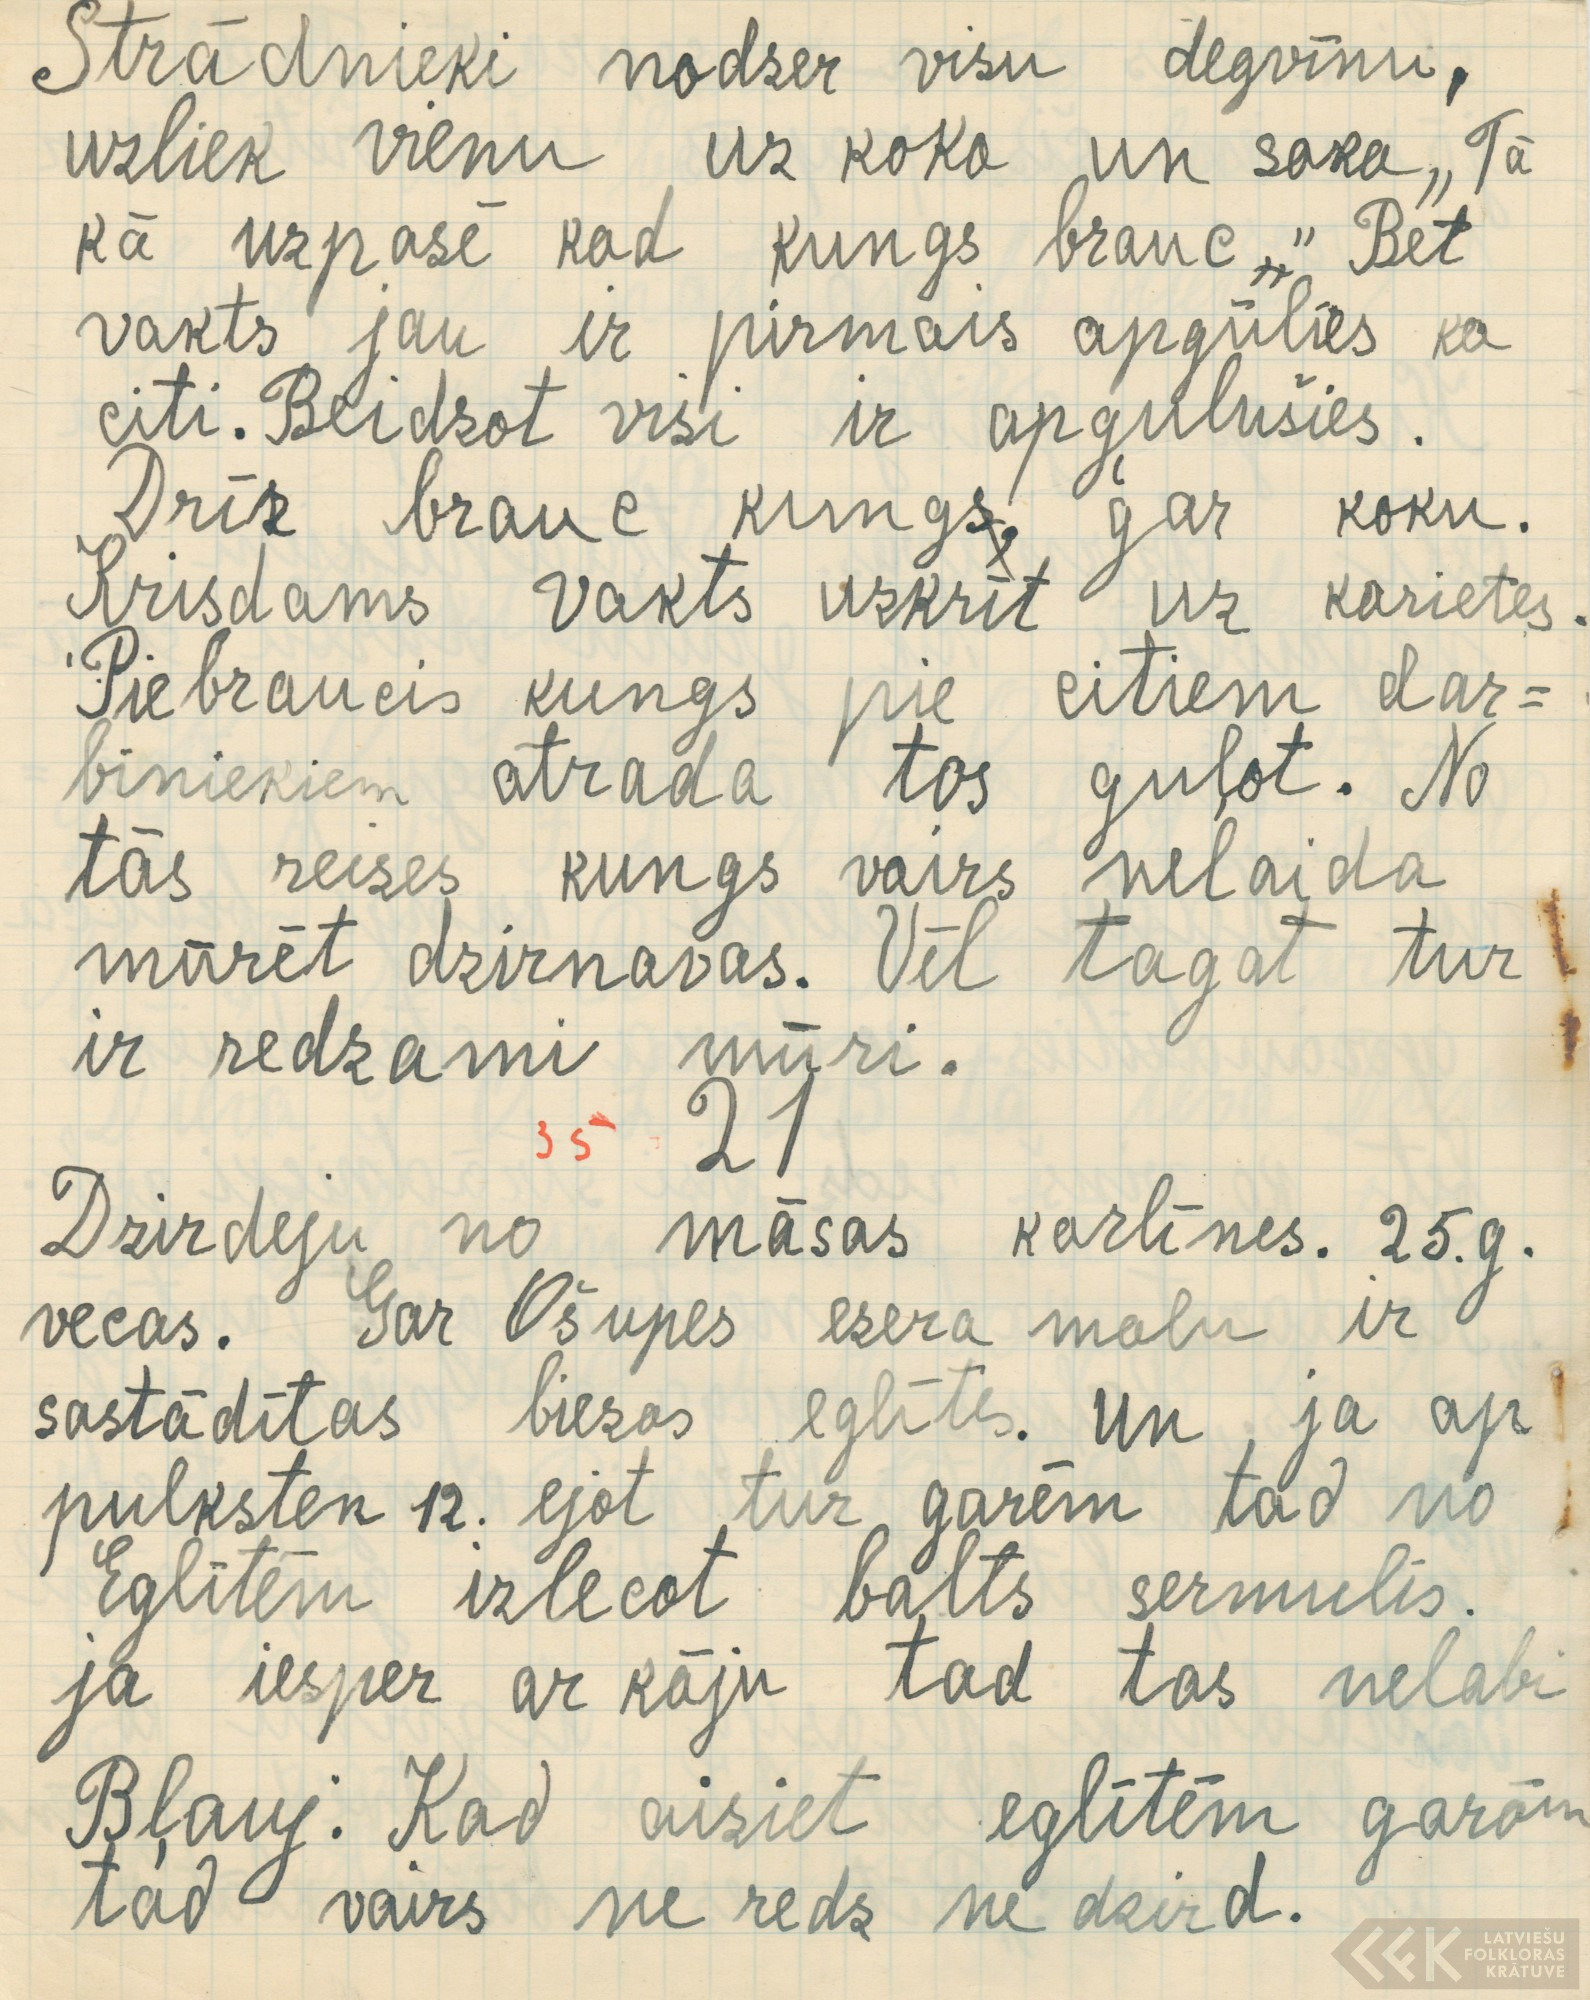 Strādnieki nodzer visu degvīnu,
uzliek vienu uz koka un saka „Tā
kā uzpasē kad kungs brauc„" Bet
vakts jau ir pirmais apgūlies ka
citi. Beidzot visi ir apgulušies.
Drīz brauc kungs gar koku.
Krisdams vakts uzkrīt uz karietes.
Piebraucis kungs pie citiem dar=
biniekiem atrada tos guļot. No
tās reizes kungs vairs nelaida
mūrēt dzirnavas. Vēl tagat tur
ir redzami mūri.
35 21
Dzirdeju no māsas karlīnes. 25.g.
vecas. Gar Ošupes ezera malu ir
sastādītas biezas eglītes. un ja ap
pulksten 12. ejot tur garēm tad no
Eglītēm izlecot balts sermulis.
ja iesper ar kāju tad tas nelabi
Bļauj. Kad aiziet eglītēm garām
tad vairs ne redz ne dzird.
LATVIEŠU
FOLKLORAS
KRĀTUVE